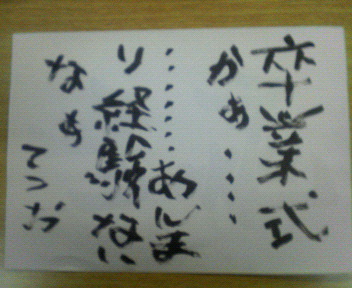 卒業式
かぁ・・・・
・・・・・・・あんま
り経験ない
なぁ
てつお